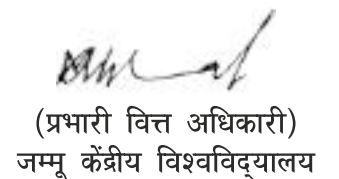 (प्रभारी वित्त अधिकारी)
जम्मू केंद्रीय विश्वविद्यालय